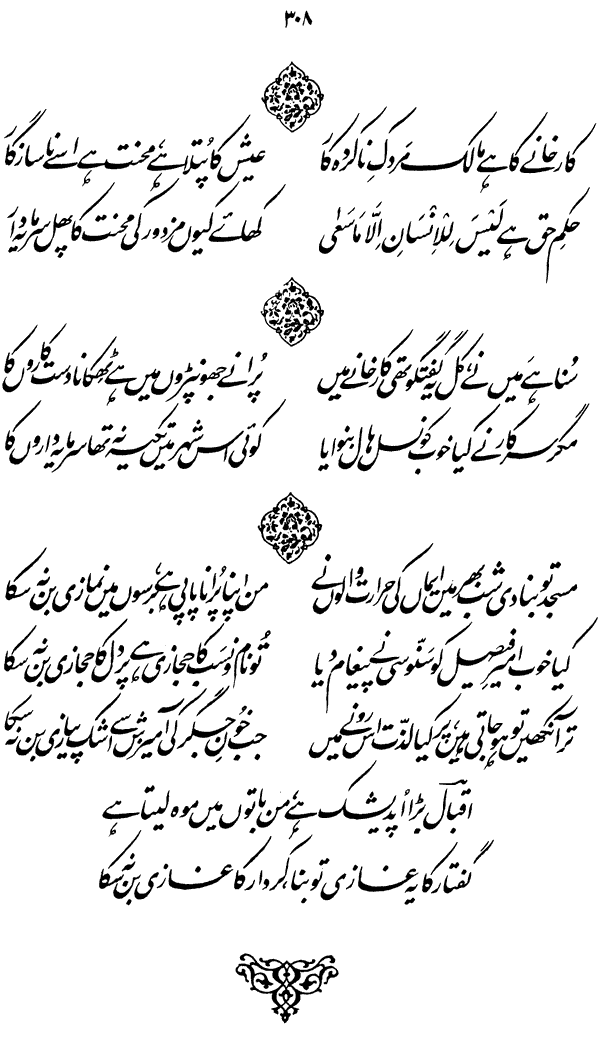 ۳۰۸
کارخانے کا ہے مالک مَردکِ ناکردہ کار عیش کا پُتلا ہے، محنت ہے اسے ناسازگار
حکمِ حق ہے لَیْسَ لِلْاِنْسَانِ اِلَّا مَا سَعٰی کھائے کیوں مزدور کی محنت کا پھل سرمایہ دار
سُنا ہے مَیں نے، کل یہ گفتگو تھی کارخانے میں پُرانے جھونپڑوں میں ہے ٹھکانا دست کاروں کا
مگر سرکار نے کیا خوب کونسل ہال بنوایا کوئی اس شہر میں تکیہ نہ تھا سرمایہ داروں کا
مسجد تو بنا دی شب بھر میں ایماں کی حرارت والوں نے من اپنا پُرانا پاپی ہے، برسوں میں نمازی بن نہ سکا
کیا خوب امیرِ فیصل کو سَنّوسی نے پیغام دیا تُو نام و نسَب کا حجازی ہے پر دل کا حجازی بن نہ سکا
تر آنکھیں تو ہو جاتی ہیں، پر کیا لذّت اس رونے میں جب خُونِ جگر کی آمیزش سے اشک پیازی بن نہ سکا
اقبالؔ بڑا اُپدیشک ہے، من باتوں میں موہ لیتا ہے
گفتار کا یہ غازی تو بنا، کردار کا غازی بن نہ سکا